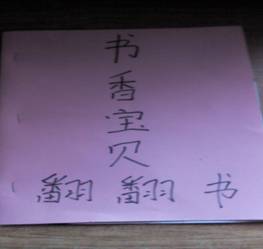 书香宝贝
翻翻书